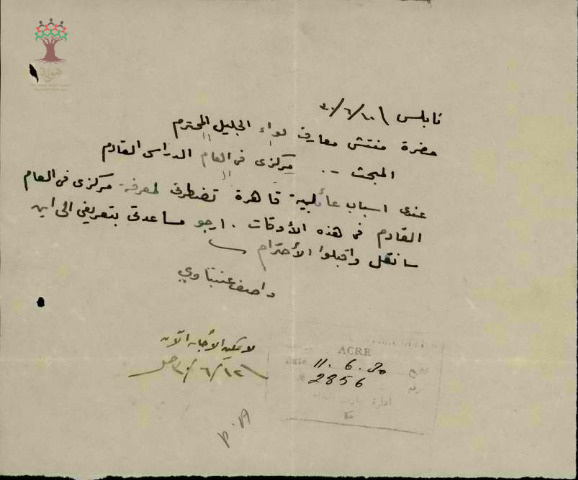 نابلس ١٠/٦/٣٠
حضرة مفتش معارف لواء الجليل المحترم
المبحث -- مركزي في العام الدراسي القادم
عندي اسباب عائلية قاهرة تضطرني لمعرفة مركزي في العام
القادم في هذه الأوقات. ارجو مساعدتي بتعريفي الى اين
سانقل واقبلوا الأحترام
واصف عنبتاوي
لا يمكن الأجابة الآن
١٢/٦/٣٠
ACRE
11. 6. 30
2856
P.A